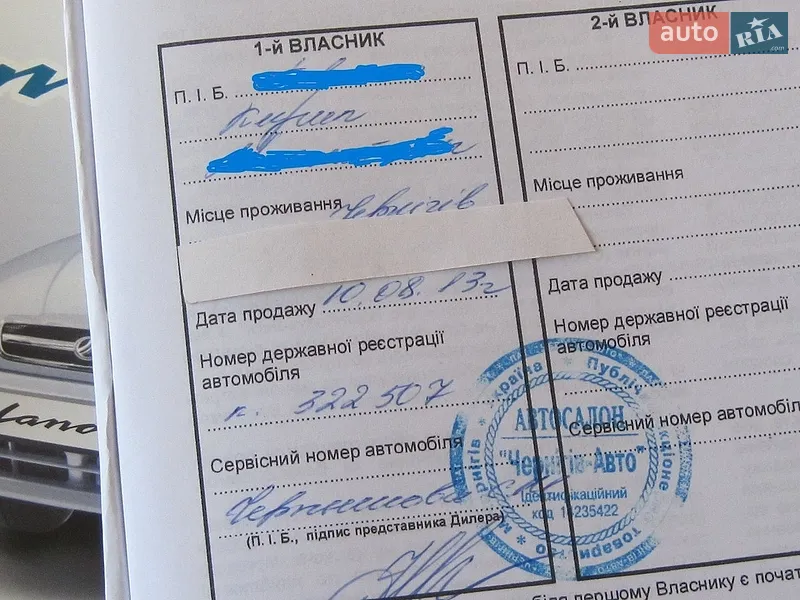 auto RIA.com
1-й ВЛАСНИК
П. І. Б.
Кирил
Місце проживання Чернігів
Дата продажу 10.08.13г
Номер державної реєстрації
автомобіля
к. 322507
Сервісний номер автомобіля
(П. І. Б., підпис представника Дилера)
2-й ВЛАСНИК
П. І. Б.
Місце проживання
Дата продажу
Номер державної реєстрації
автомобіля
Сервісний номер автомобіля
АВТОСАЛОН
"Чернігів-Авто"
Ідентифікаційний
код 14235422
першому Власнику є почат
Lano